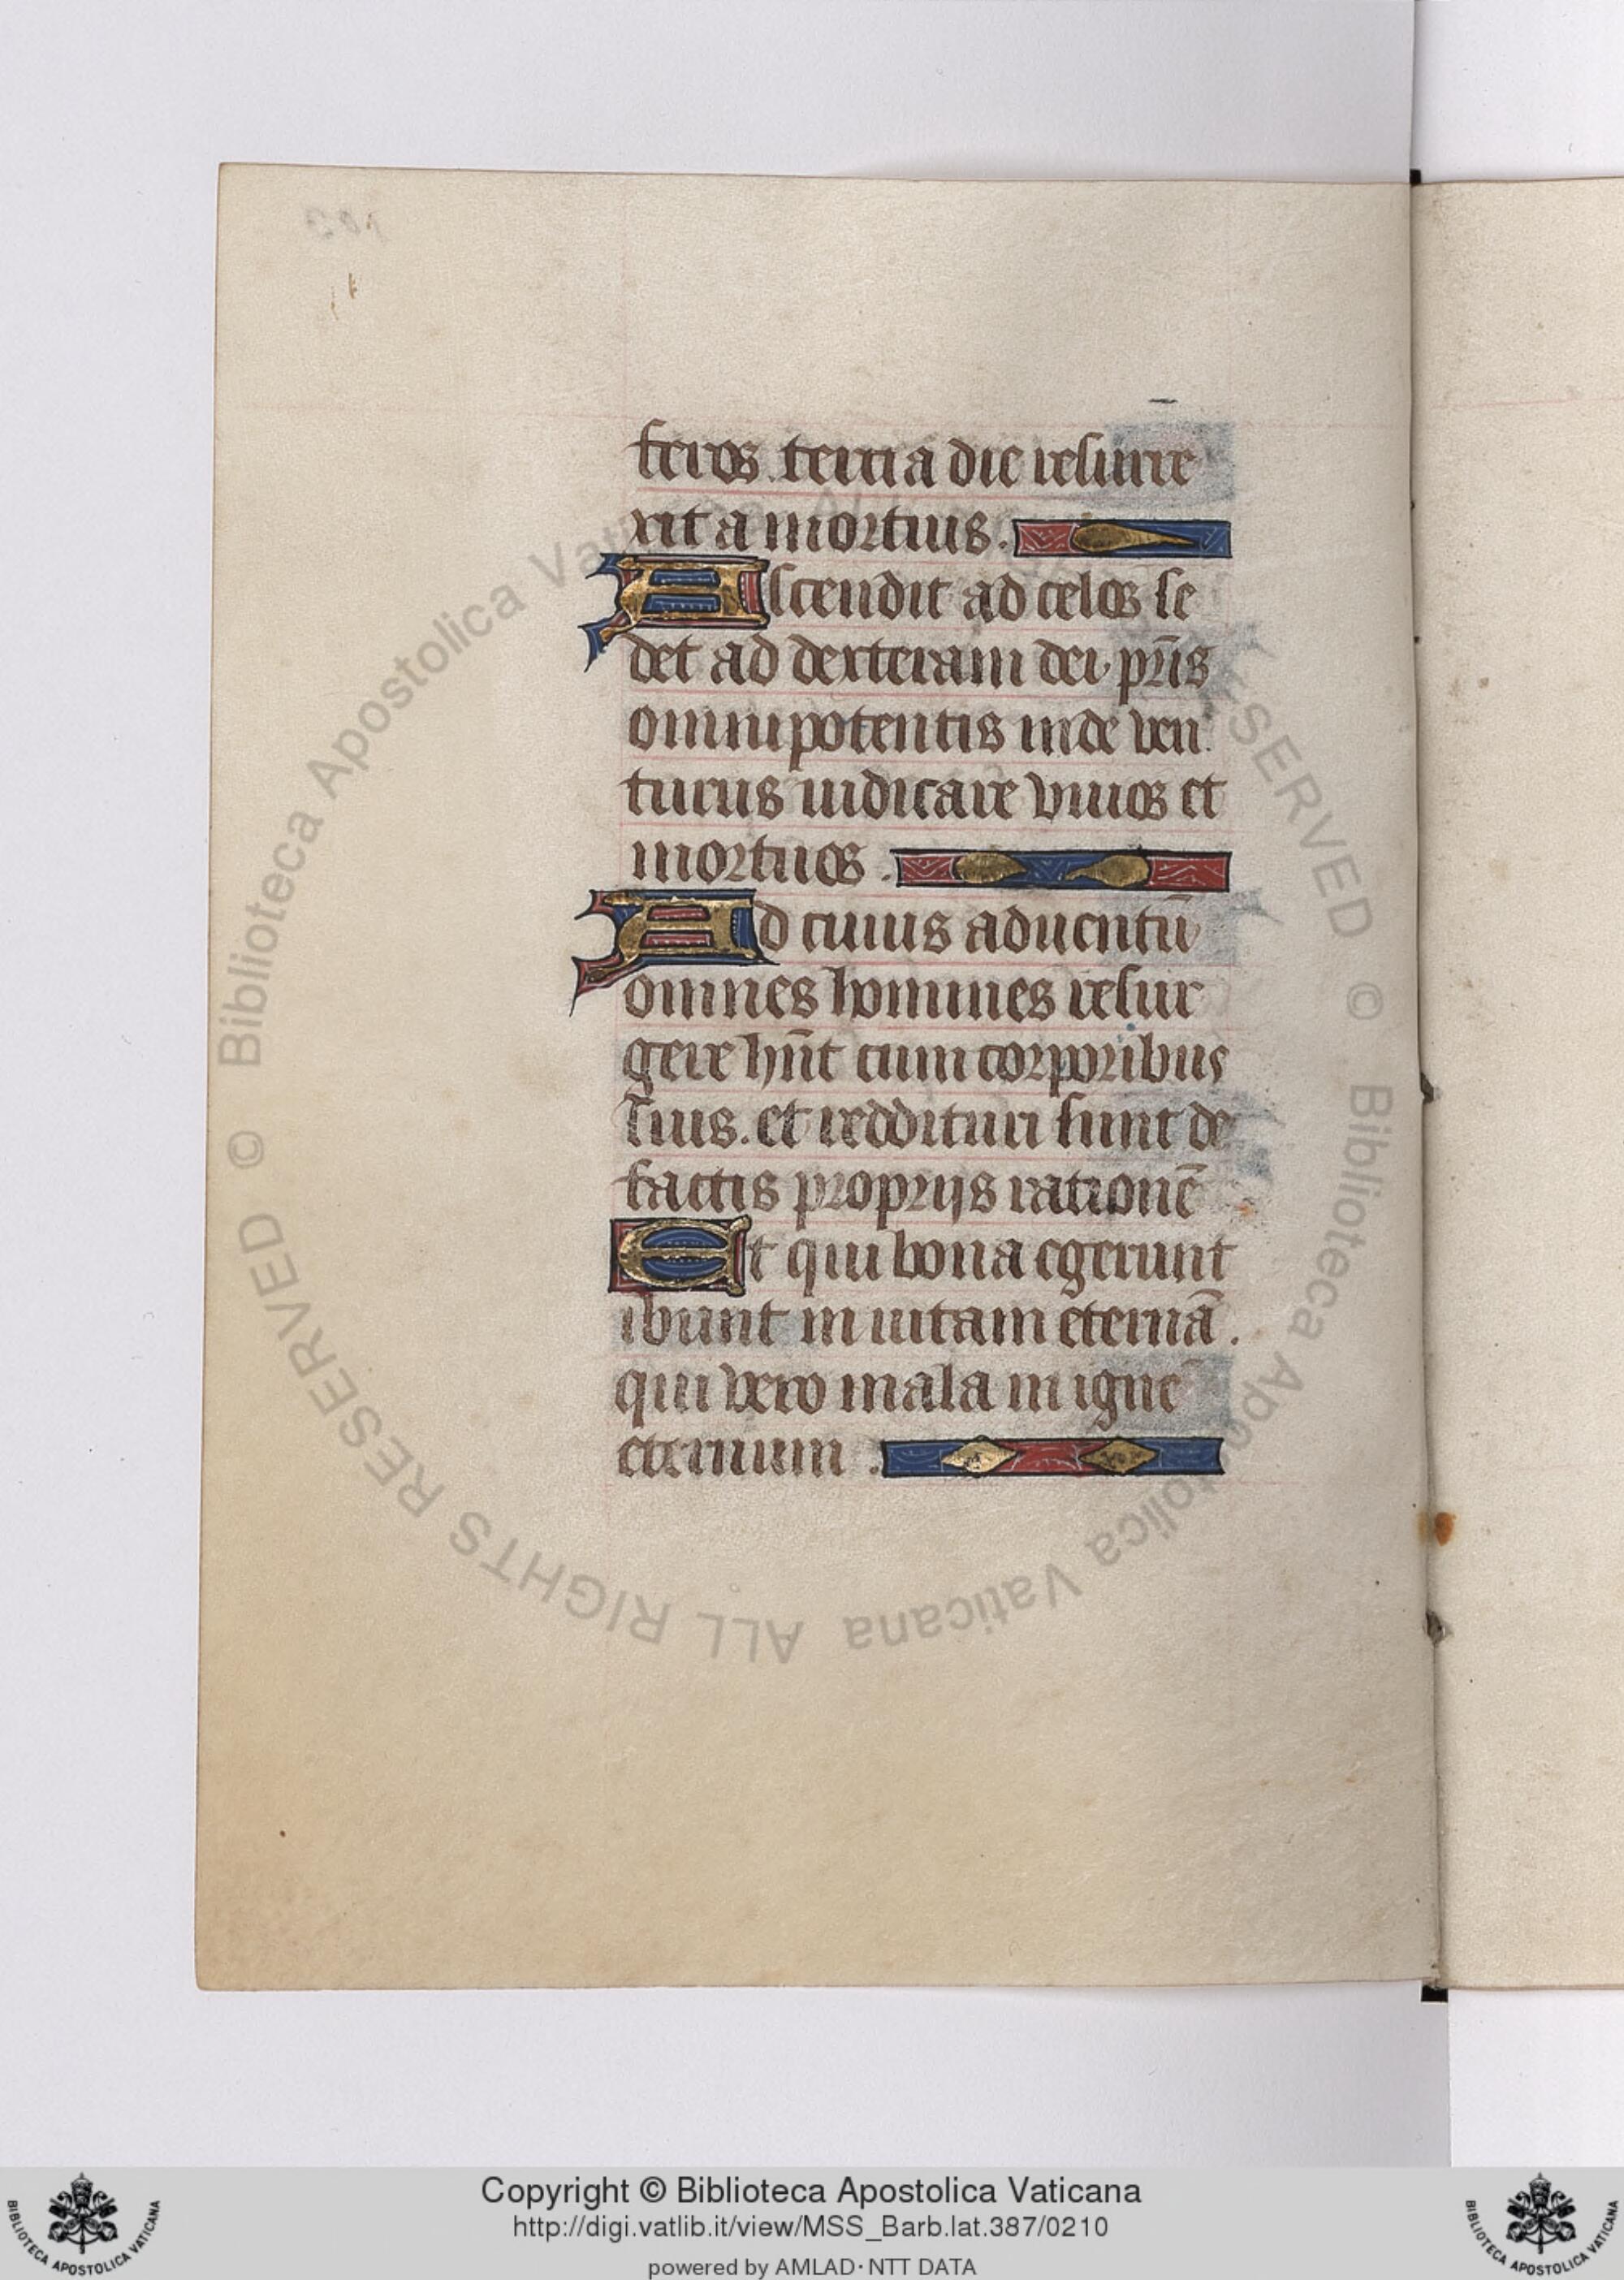 feros. tercia die resurre
xit a mortuis.
Ascendit ad celos se
det ad dexteram dei pr̄is
omnipotentis inde ven
turus iudicare viuos et
mortuos.
Ad cuius aduentū
omnes homines resur
gere hn̄t cum corporibus
suis. et reddituri sunt de
factis proprijs rationē
Et qui bona egerunt
ibunt in uitam eternā.
qui vero mala in ignē
eternum.
© Biblioteca Apostolica Vaticana ALL RIGHTS RESERVED © Biblioteca Apostolica Vaticana ALL RIGHTS RESERVED
Copyright © Biblioteca Apostolica Vaticana
http://digi.vatlib.it/view/MSS_Barb.lat.387/0210
powered by AMLAD·NTT DATA
BIBLIOTECA APOSTOLICA VATICANA
BIBLIOTECA APOSTOLICA VATICANA